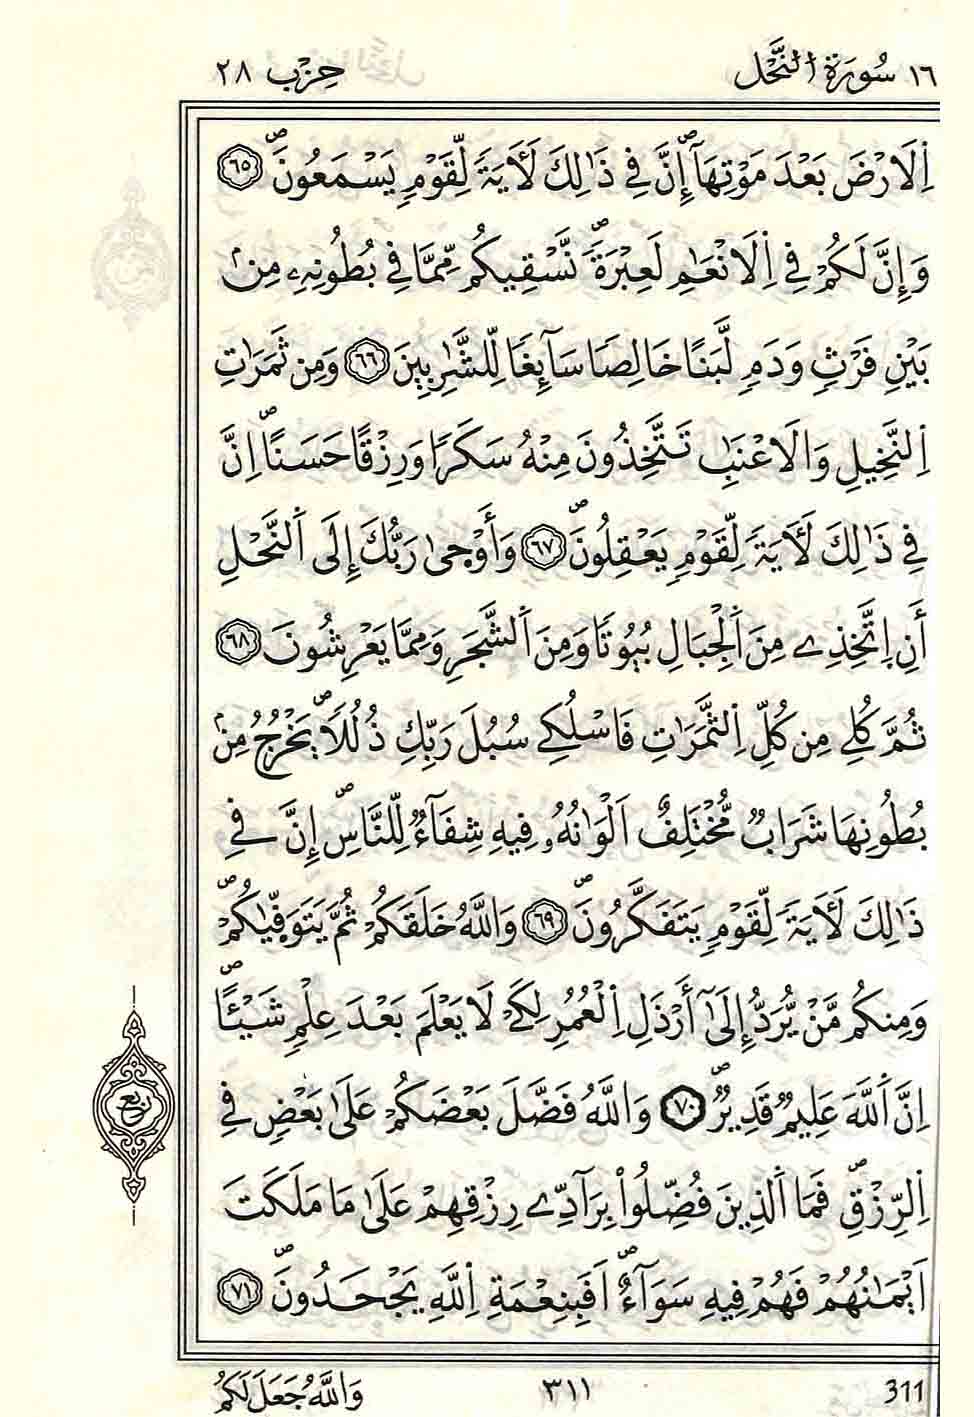 ١٦ سُورَةُ النَّحْل حِزْب ٢٨
اِلَارْضَ بَعْدَ مَوْتِهَآۖ إِنَّ فِي ذَٰلِكَ لَأٓيَةٗ لِّقَوْمٖ يَسْمَعُونَۖ ٦٥
وَإِنَّ لَكُمْ فِي اِلَانْعَٰمِ لَعِبْرَةٗۖ نَّسْقِيكُم مِّمَّا فِي بُطُونِهِۦ مِنۢ
بَيْنِ فَرْثٖ وَدَمٖ لَّبَناً خَالِصاٗ سَآئِغاٗ لِّلشَّٰرِبِينَ ٦٦ وَمِن ثَمَرَٰتِ
اِلنَّخِيلِ وَالَاعْنَٰبِ تَتَّخِذُونَ مِنْهُ سَكَراٗ وَرِزْقاً حَسَناًۖ اِنَّ
فِي ذَٰلِكَ لَأٓيَةٗ لِّقَوْمٖ يَعْقِلُونَۖ ٦٧ وَأَوْحَىٰ رَبُّكَ إِلَى اَلنَّحْلِ
أَنِ اِتَّخِذِے مِنَ اَلْجِبَالِ بُيُوتاٗ وَمِنَ اَلشَّجَرِ وَمِمَّا يَعْرِشُونَ ٦٨
ثُمَّ كُلِے مِن كُلِّ اِلثَّمَرَٰتِ فَاسْلُكِے سُبُلَ رَبِّكِ ذُلُلاٗۖ يَخْرُجُ مِنۢ
بُطُونِهَا شَرَابٞ مُّخْتَلِفٌ اَلْوَٰنُهُۥ فِيهِ شِفَآءٞ لِّلنَّاسِۖ إِنَّ فِے
ذَٰلِكَ لَأٓيَةٗ لِّقَوْمٖ يَتَفَكَّرُونَۖ ٦٩ وَاللَّهُ خَلَقَكُمْ ثُمَّ يَتَوَفّ۪يٰكُمْۖ
وَمِنكُم مَّنْ يُّرَدُّ إِلَىٰٓ أَرْذَلِ اِلْعُمُرِ لِكَےْ لَا يَعْلَمَ بَعْدَ عِلْمٖ شَيْـٔاًۖ
اِنَّ اَللَّهَ عَلِيمٞ قَدِيرٞۖ ٧٠ وَاللَّهُ فَضَّلَ بَعْضَكُمْ عَلَىٰ بَعْضٖ فِي
اِلرِّزْقِۖ فَمَا اَلذِينَ فُضِّلُواْ بِرَآدِّے رِزْقِهِمْ عَلَىٰ مَا مَلَكَتَ
اَيْمَٰنُهُمْ فَهُمْ فِيهِ سَوَآءٌۖ اَفَبِنِعْمَةِ اِللَّهِ يَجْحَدُونَۖ ٧١
ربع
وَاللَّهُ جَعَلَ لَكُم ٣١١ 311